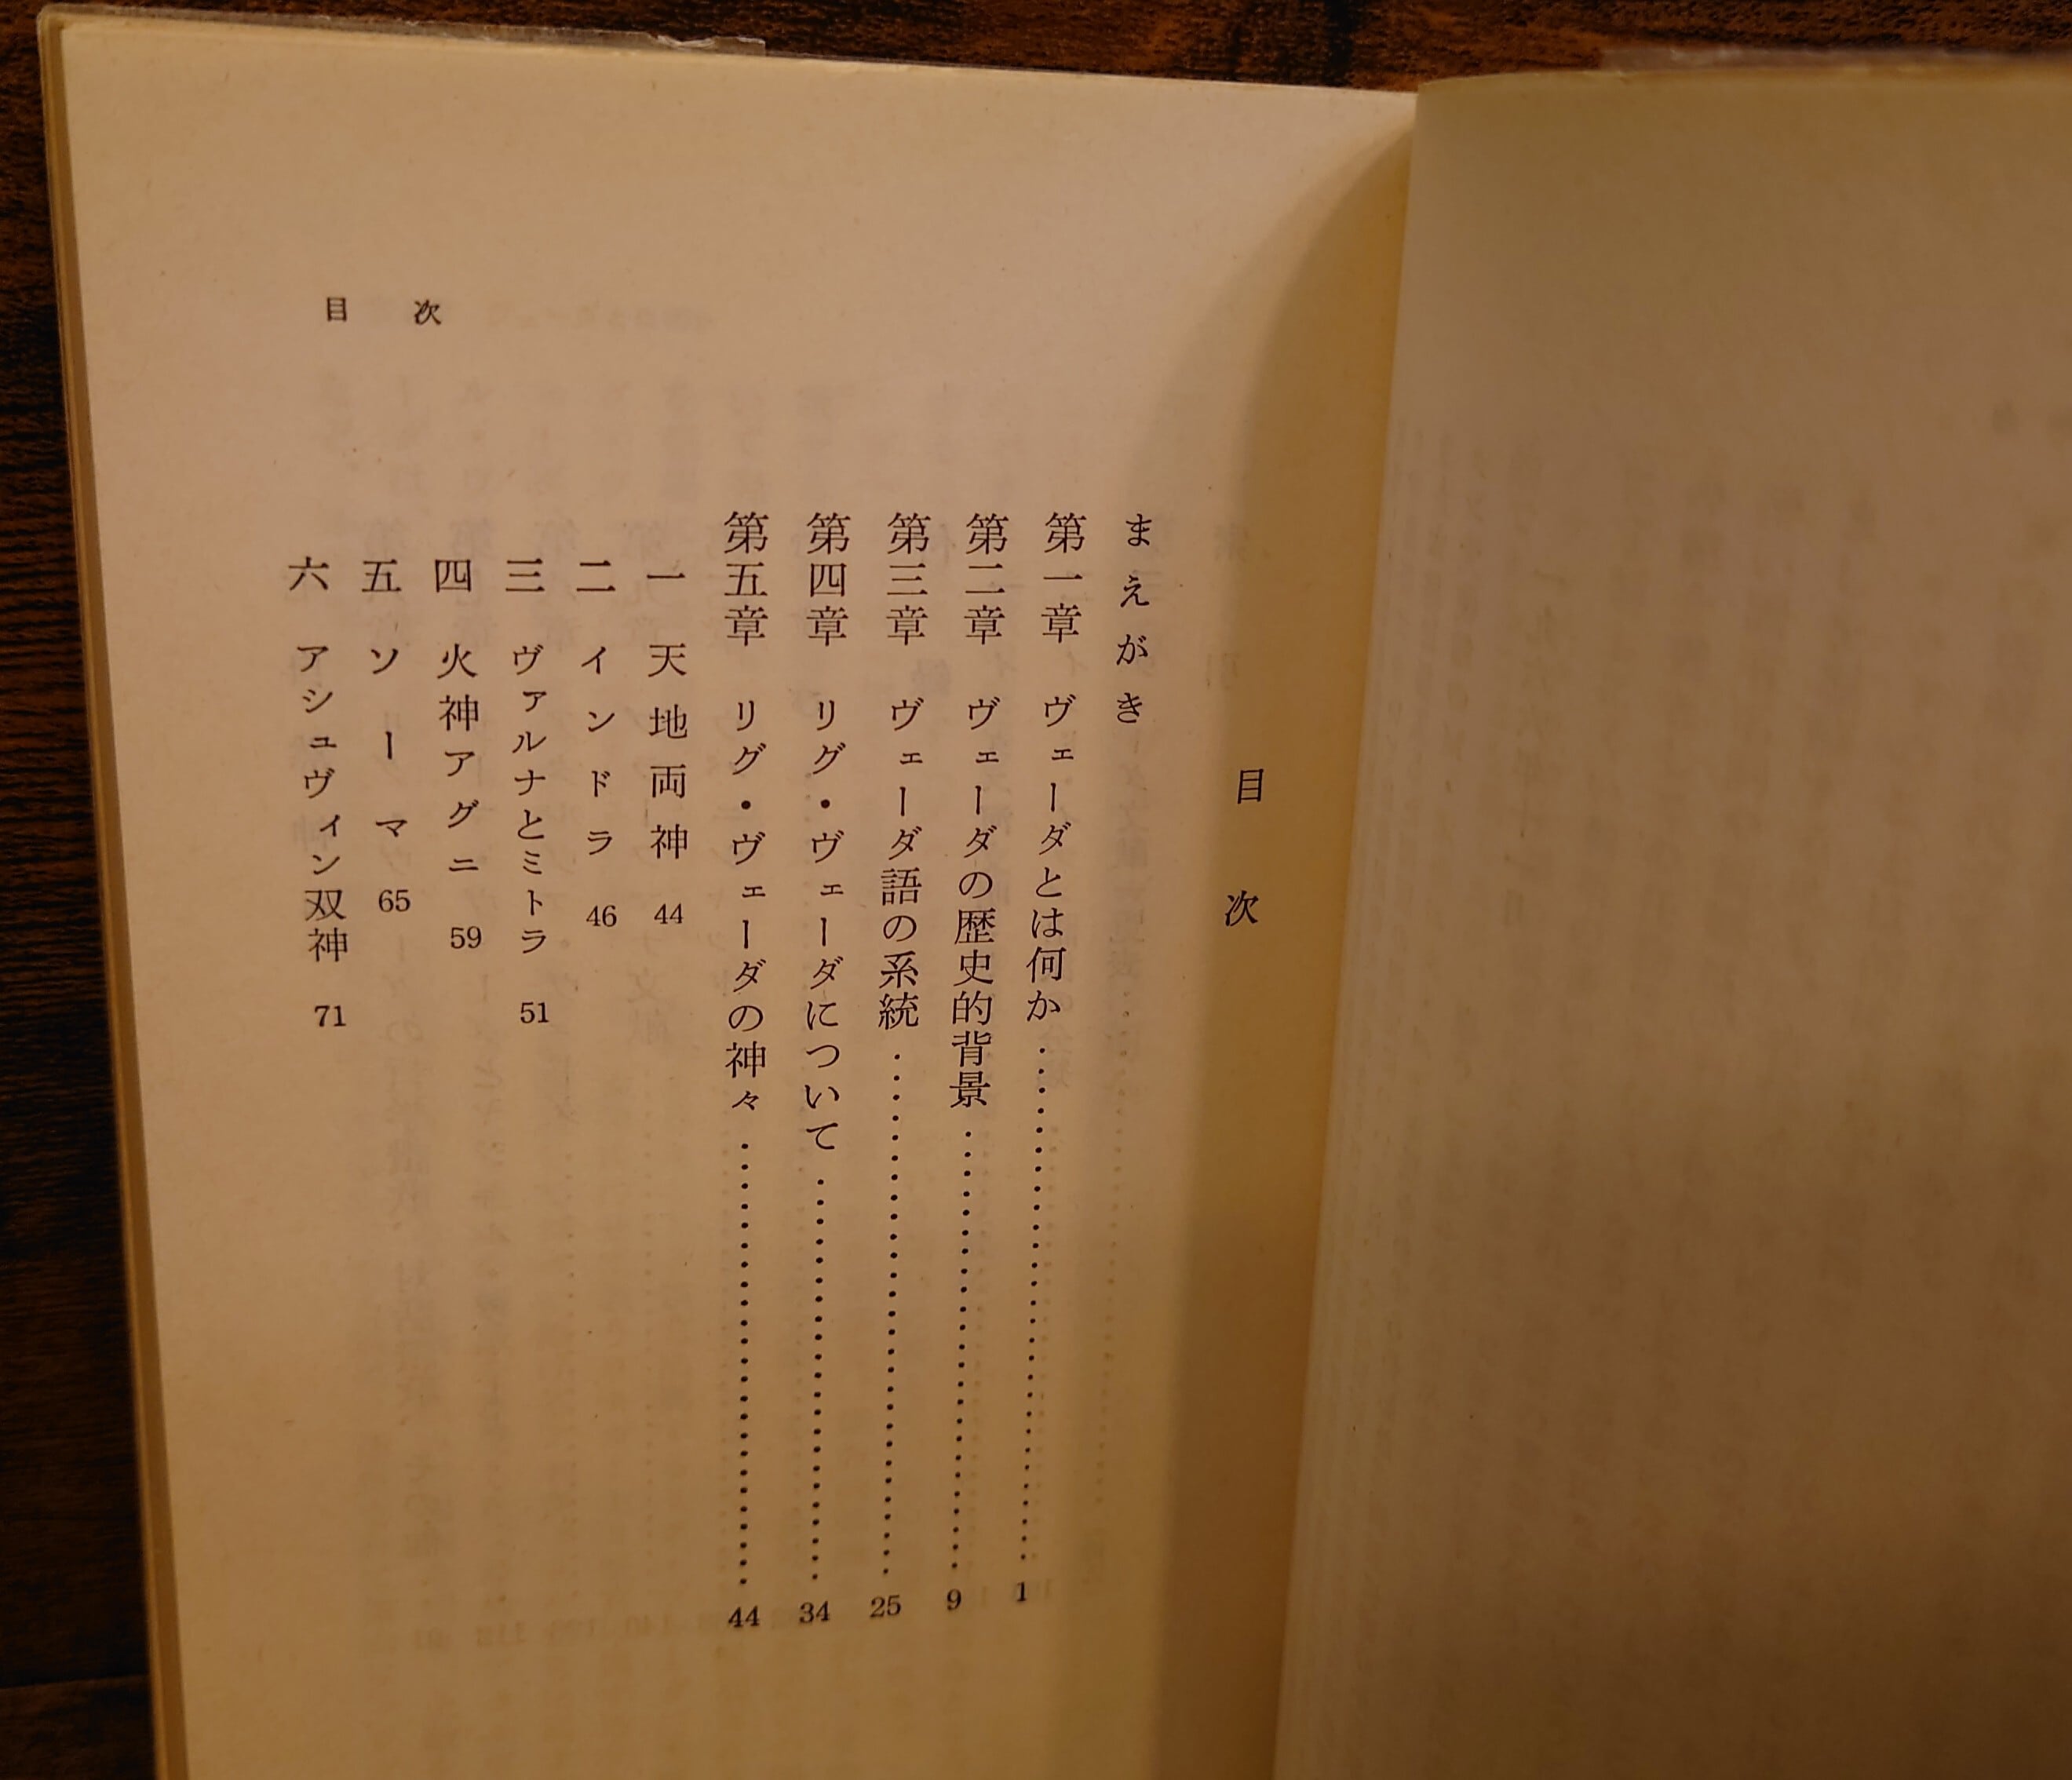 目次
目次
まえがき
第一章 ヴェーダとは何か……………………1
第二章 ヴェーダの歴史的背景……………………9
第三章 ヴェーダ語の系統……………………25
第四章 リグ・ヴェーダについて……………………34
第五章 リグ・ヴェーダの神々……………………44
一 天地両神 44
二 インドラ 46
三 ヴァルナとミトラ 51
四 火神アグニ 59
五 ソーマ 65
六 アシュヴィン双神 71